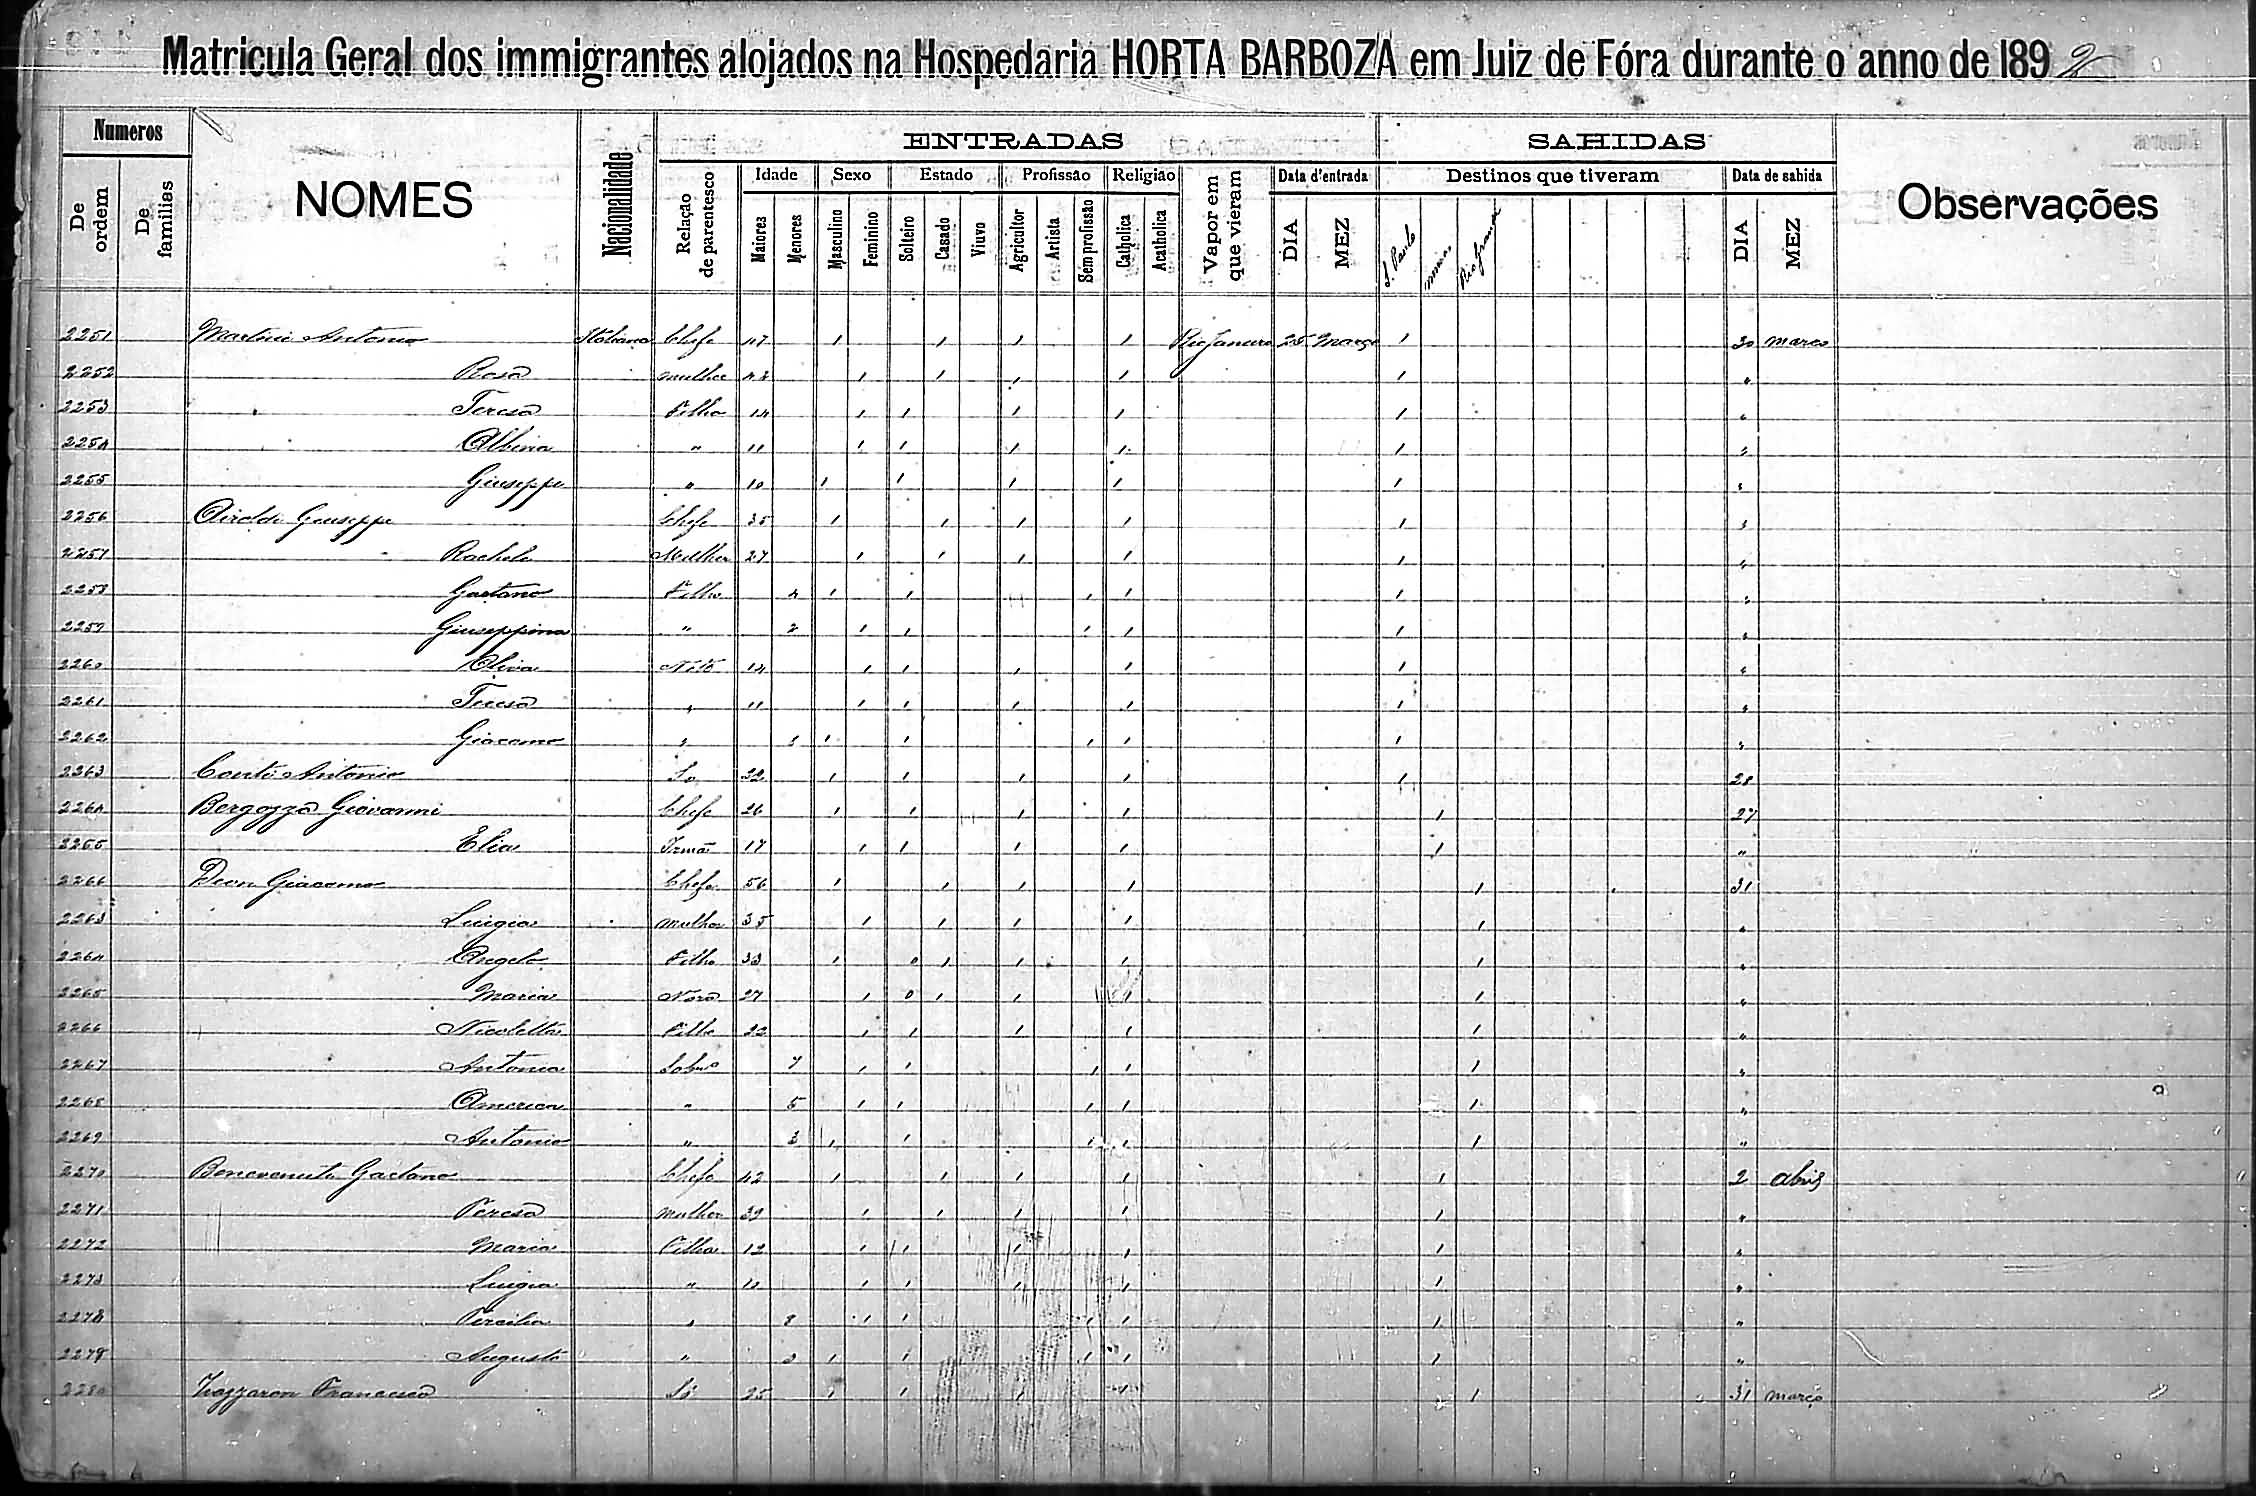 Matricula Geral dos immigrantes alojados na Hospedaria HORTA BARBOZA em Juiz de Fóra durante o anno de 1892
Numeros
De ordem
De familias
NOMES
Nacionalidade
ENTRADAS
Relação de parentesco
Idade
Maiores
Menores
Sexo
Masculino
Feminino
Estado
Solteiro
Casado
Viuvo
Profissão
Agricultor
Artista
Sem profissão
Religião
Catholica
Acatholica
Vapor em que vieram
Data d'entrada
DIA
MEZ
SAHIDAS
Destinos que tiveram
S. Paulo
minas
Rio Grande
Data de sahida
DIA
MEZ
Observações
2251 Martini Antonio Italiana Chefe 47 1 1 1 1 Rio Janeiro 25 Março 1 30 março
2252 Rosa mulher 42 1 1 1 1 1 "
2253 Teresa Filha 14 1 1 1 1 1 "
2254 Albina " 11 1 1 1 1 1 "
2255 Giuseppe " 10 1 1 1 1 1 "
2256 Airoldi Giuseppe Chefe 35 1 1 1 1 1 "
2257 Rachele Mulher 27 1 1 1 1 1 "
2258 Gaetano Filho 4 1 1 1 1 1 "
2257 Giuseppina " 2 1 1 1 1 1 "
2260 Oliva 14 1 1 1 1 1 "
2261 Teresa " 11 1 1 1 1 1 "
2262 Giacomo " 1 1 1 1 1 "
2263 Conti Antonio So 22 1 1 1 1 1 28
2264 Bergozza Giovanni Chefe 26 1 1 1 1 1 27
2265 Elia Irmã 17 1 1 1 1 1 "
2266 Deon Giacomo Chefe 56 1 1 1 1 1 31
2263 Luigia mulher 35 1 1 1 1 1 "
2264 Angelo Filho 33 1 0 1 1 1 1 "
2265 Maria Nora 27 1 0 1 1 1 1 "
2266 Nicoletta Filha 22 1 1 1 1 1 "
2267 Antonia 7 1 1 1 1 1 "
2268 America " 5 1 1 1 1 1 "
2269 Antonio " 3 1 1 1 1 1 "
2270 Benevenuto Gaetano Chefe 42 1 1 1 1 1 2 abril
2271 Teresa mulher 39 1 1 1 1 1 "
2272 Maria Filha 12 1 1 1 1 1 "
2273 Luigia " 1 1 1 1 1 "
2278 Tercilia " 8 1 1 1 1 1 "
2279 Augusto " 1 1 1 1 1 "
2280 Francesco Só 25 1 1 1 1 1 31 março